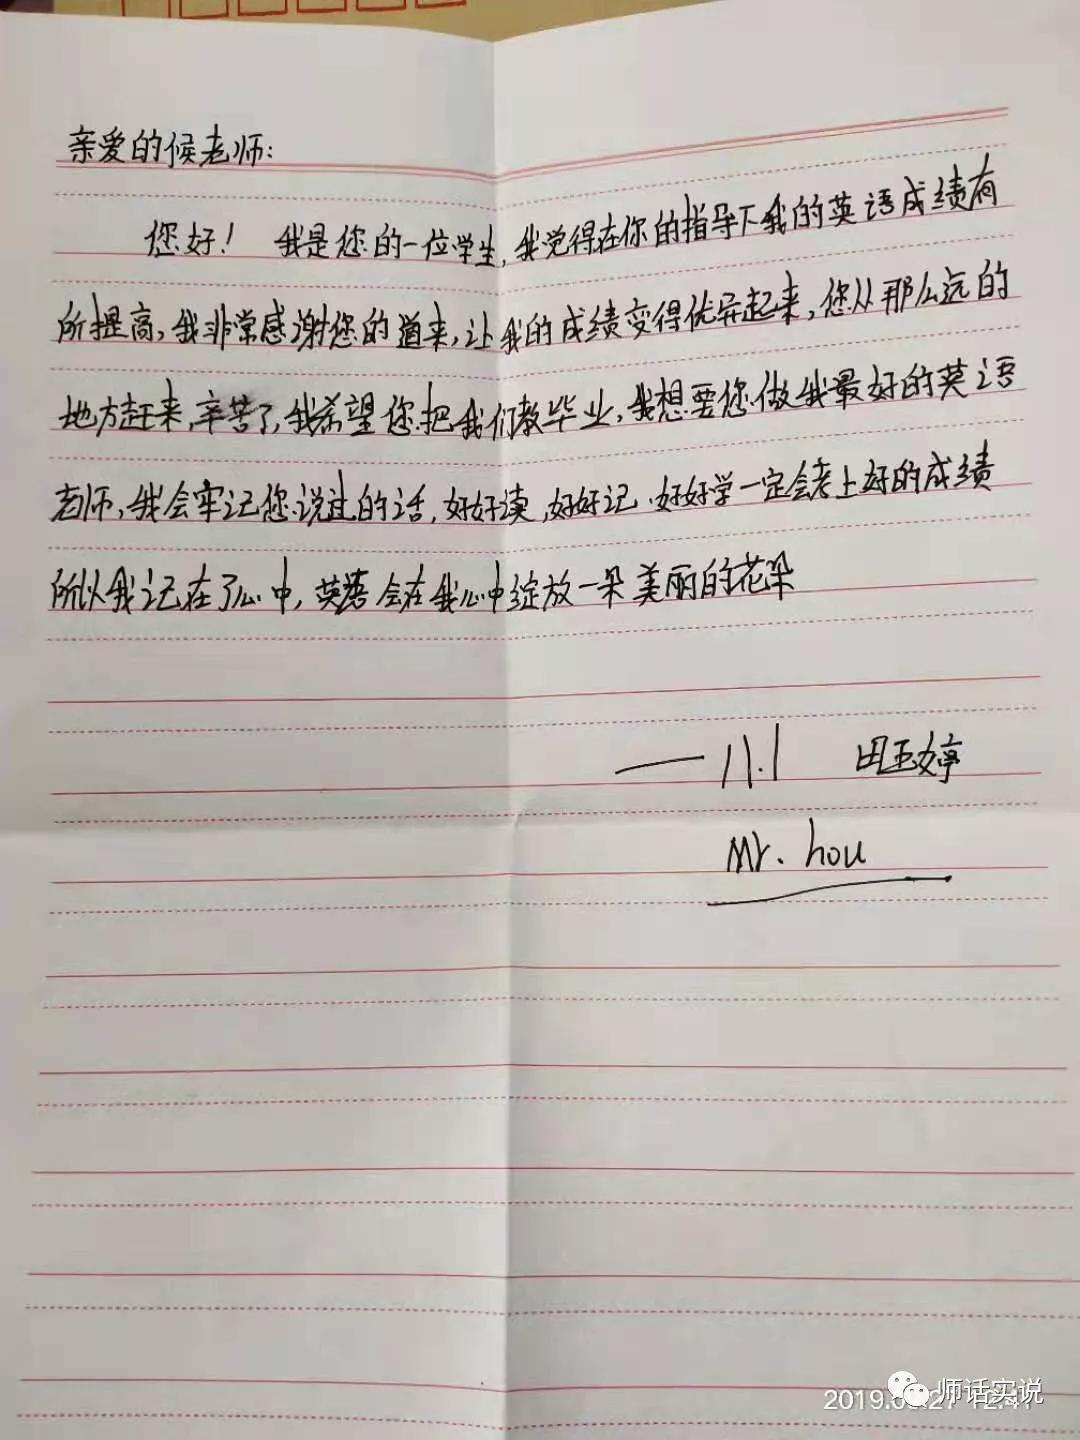 亲爱的候老师：
您好！ 我是您的一位学生，我觉得在你的指导下我的英语成绩有
所提高，我非常感谢您的道来，让我的成绩变得优异起来，您从那么远的
地方赶来，辛苦了，我希望您把我们教毕业，我想要您做我最好的英语
老师，我会牢记您说过的话，好好读，好好记，好好学一定会考上好的成绩
所以我记在了心中，英语会在我心中绽放一朵美丽的花朵
—— 八.1 田玉婷
Mr. hou
师话实说